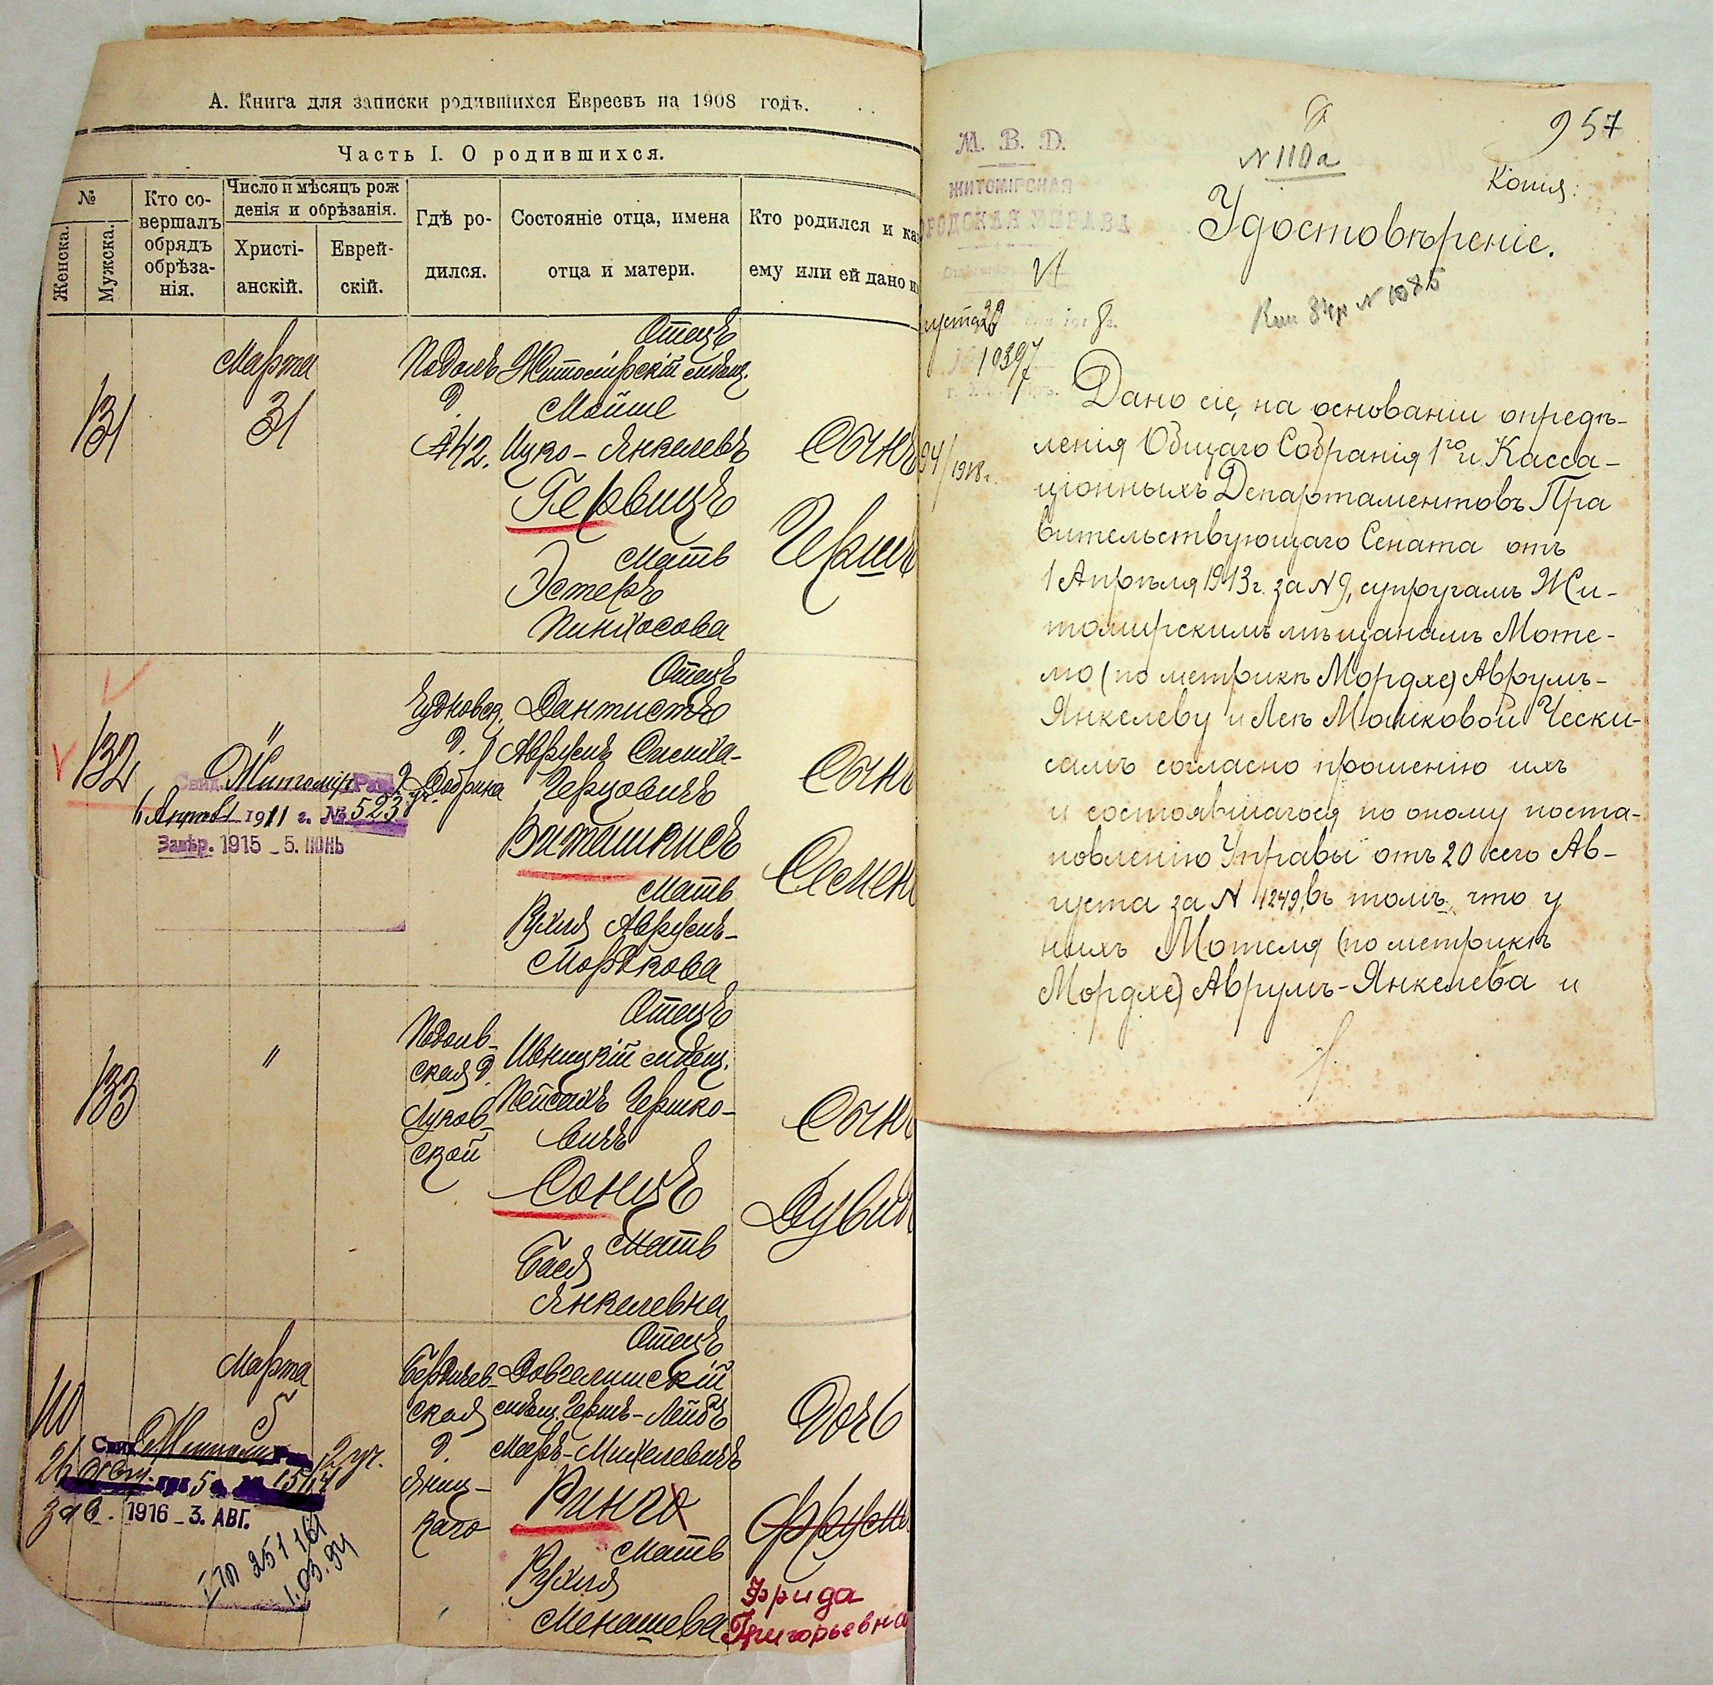 А. Книга для записки родившихся Евреевъ на 1908 годъ.
Часть I. О родившихся.
№
Женска.
Мужска.
Кто со-
вершалъ
обрядъ
обрѣза-
нія.
Число и мѣсяцъ рож
денія и обрѣзанія.
Христі-
анскій.
Еврей-
скій.
Гдѣ ро-
дился.
Состояніе отца, имена
отца и матери.
Кто родился и ка
ему или ей дано и
131
Марта
31
№42.
Отецъ
Житомірскій мѣщ.
Мойше
Ицко-Янкелевъ
Гервицъ
Мать
Эстеръ
Пинхосова
Сынъ
Гершъ
132
"
Житомір
6 Апрѣля 1911 г. № 523
Завѣр. 1915 - 5. ІЮНЬ
Чудновск.
д.
Добрина
Отецъ
Дантистъ
Аврумъ Симха-
Герцовичъ
Виташкисъ
Мать
Рухля Аврумъ-
Моркова
Сынъ
Семен
133
"
Подоль-
ская д.
Луков-
ской
Отецъ
Ивницкій мѣщ.
Пейсахъ Гершко-
вичъ
Соницъ
Мать
Бася
Янкелевна
Сынъ
Дувид
110
Марта
5
2 уч.
зав. 1916 - 3. АВГ.
251161
1.03.94
Бердичев-
ская
д.
Яниц-
каго
Отецъ
Довгелишскій
мѣщ. Гершъ-Лейбъ
Мееръ-Михелевичъ
Ринго
Мать
Рухля
Менашева
Дочь
Фрума
Фрида
Григорьевна
М. В. Д.
ЖИТОМІРСКАЯ
РОДСКАЯ УПРАВА
уста 20 191 8 г.
10397
04/1918 г.
957
№ 110а
Копія:
Удостовѣреніе.
№ 1085
Дано сіе, на основаніи опредѣ-
ленія Общаго Собранія 1го и Касса-
ціонныхъ Департаментовъ Пра
вительствующаго Сената отъ
1 Апрѣля 1913 г. за № 9, супругамъ Жи-
томирскимъ мѣщанамъ Моте-
лю (по метрикѣ Мордхе) Аврумъ-
Янкелеву и Леѣ Мошковой Чески-
самъ согласно прошенію ихъ
и состоявшагося по оному поста-
новленію Управы отъ 20 сего Ав-
густа за № 1249, въ томъ, что у
нихъ Мотеля (по метрикѣ
Мордхе) Аврумъ-Янкелева и